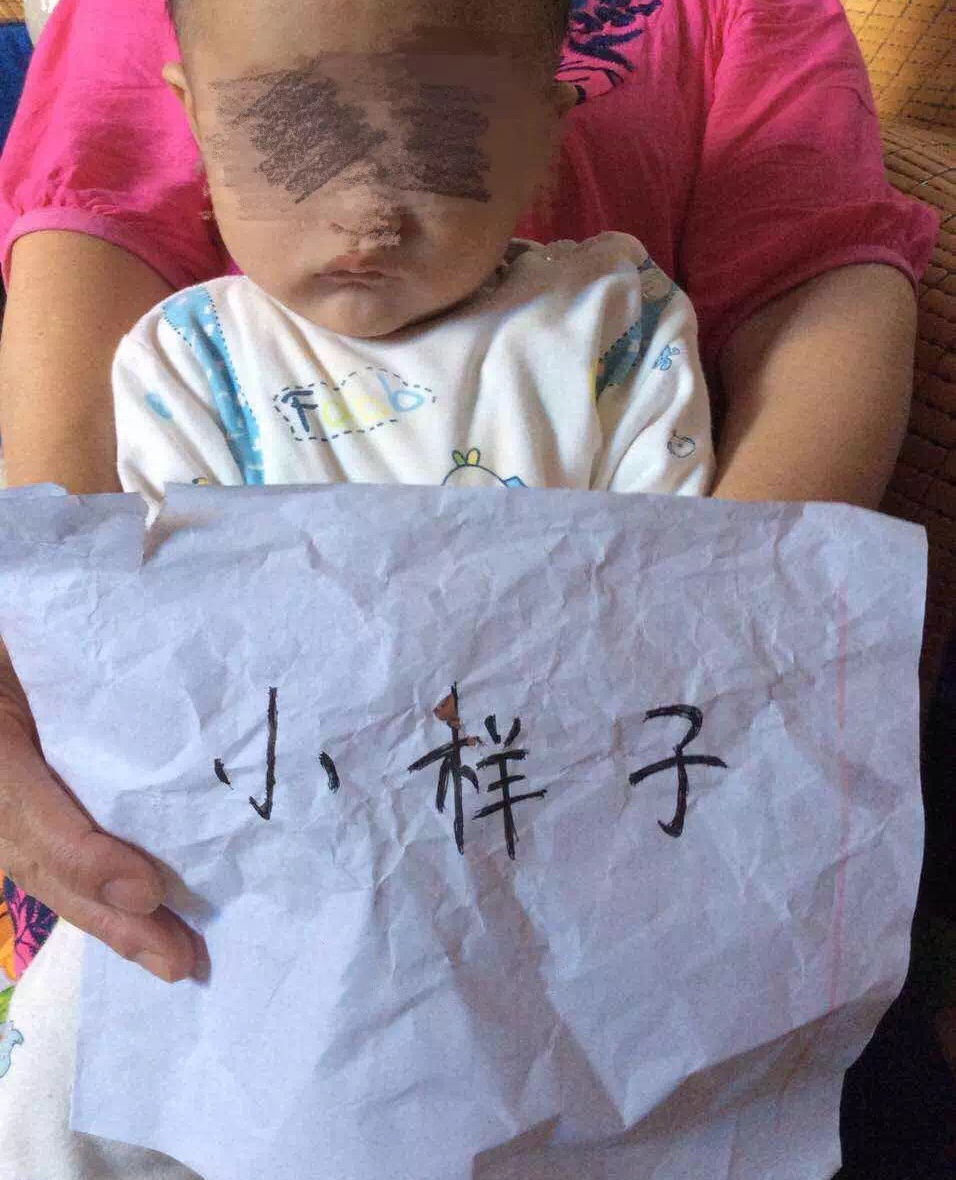 Foob
小样子